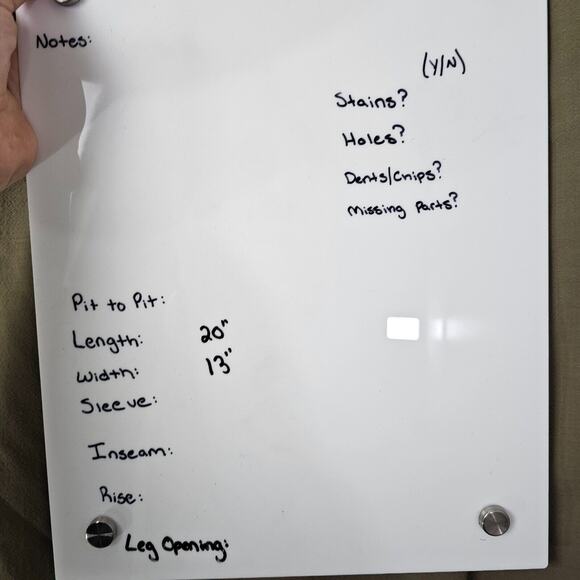 Notes:
(Y/N)
Stains?
Holes?
Dents/Chips?
Missing Parts?
Pit to Pit:
Length: 20"
Width: 13"
Sleeve:
Inseam:
Rise:
Leg Opening: